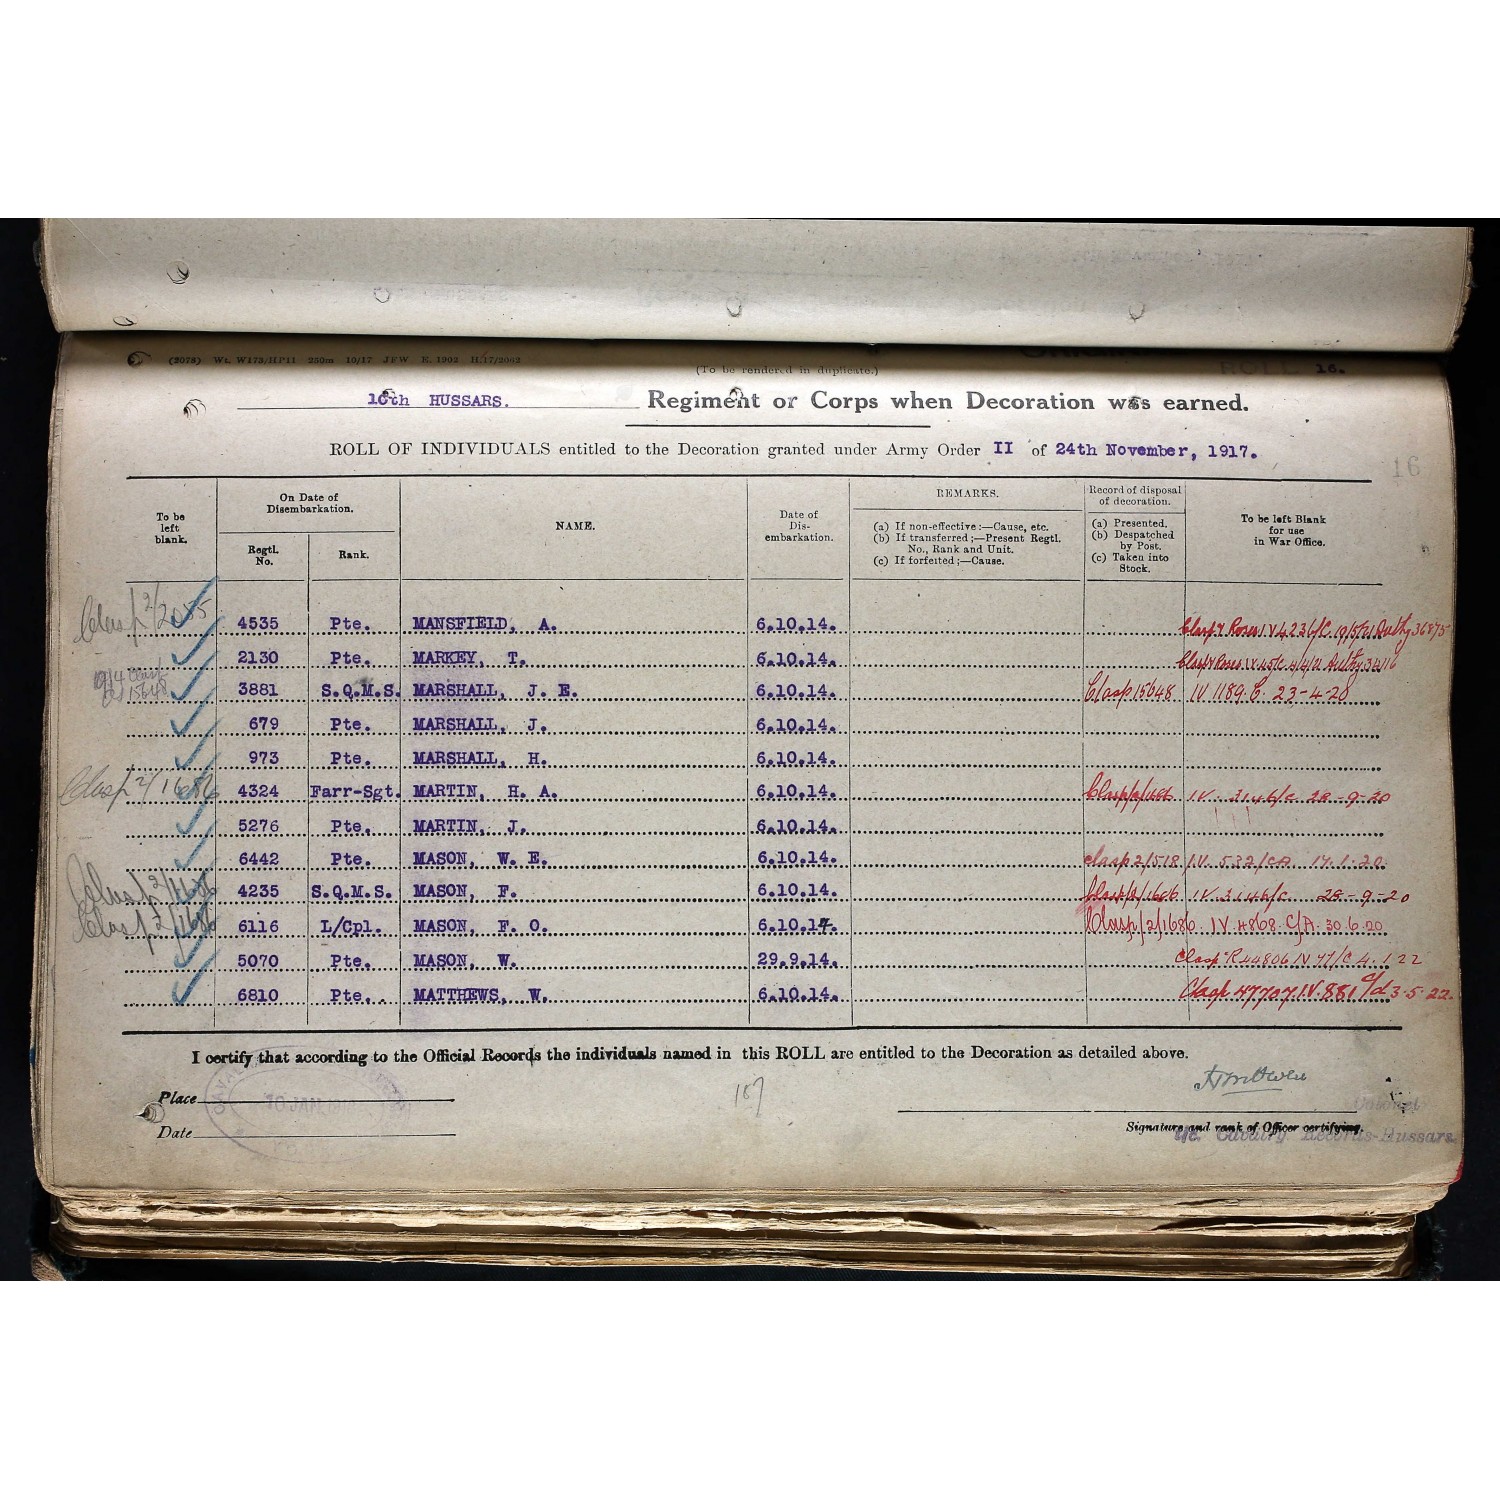 (2078) Wt. W173/HP11 250m 10/17 JFW E. 1902 H.17/2062
(To be rendered in duplicate.)
ROLL 16.
10th HUSSARS. Regiment or Corps when Decoration was earned.
ROLL OF INDIVIDUALS entitled to the Decoration granted under Army Order II of 24th November, 1917.
16
To be left blank. On Date of Disembarkation. Regtl. No. Rank. NAME. Date of Dis-embarkation. REMARKS. (a) If non-effective:—Cause, etc. (b) If transferred;—Present Regtl. No., Rank and Unit. (c) If forfeited;—Cause. Record of disposal of decoration. (a) Presented. (b) Despatched by Post. (c) Taken into Stock. To be left Blank for use in War Office.
Clasp 2/2055 4535 Pte. MANSFIELD, A. 6.10.14. Clasp & Roses IV 4236/C 19/5/21 Authy 36875
2130 Pte. MARKEY, T. 6.10.14. Clasp & Roses IV 45/C 4/4/21 Authy 34116
1914 Clasp 15648 3881 S.Q.M.S. MARSHALL, J. E. 6.10.14. Clasp 15648 IV 1189.C. 23-4-20
679 Pte. MARSHALL, J. 6.10.14.
973 Pte. MARSHALL, H. 6.10.14.
Clasp 2/1686 4324 Farr-Sgt. MARTIN, H. A. 6.10.14. Clasp/2/1686 IV. 3146/C 28-9-20
5276 Pte. MARTIN, J. 6.10.14.
6442 Pte. MASON, W. E. 6.10.14. clasp 2/518 IV. 532/CA 17.1.20
Clasp 2/1686 4235 S.Q.M.S. MASON, F. 6.10.14. Clasp/2/1686 IV. 3146/C 28-9-20
Clasp 2/1686 6116 L/Cpl. MASON, F. O. 6.10.14. Clasp/2/1686. IV. 4868. C/A. 30.6.20
5070 Pte. MASON, W. 29.9.14. Clasp R44806 IV 77/C 4.1.22
6810 Pte. MATTHEWS, W. 6.10.14. Clasp 47707.IV.881 C/d 3-5-22.
I certify that according to the Official Records the individuals named in this ROLL are entitled to the Decoration as detailed above.
Place 10 JAN
187
Colonel
Date
Signature and rank of Officer certifying.
i/c. Cavalry Records-Hussars